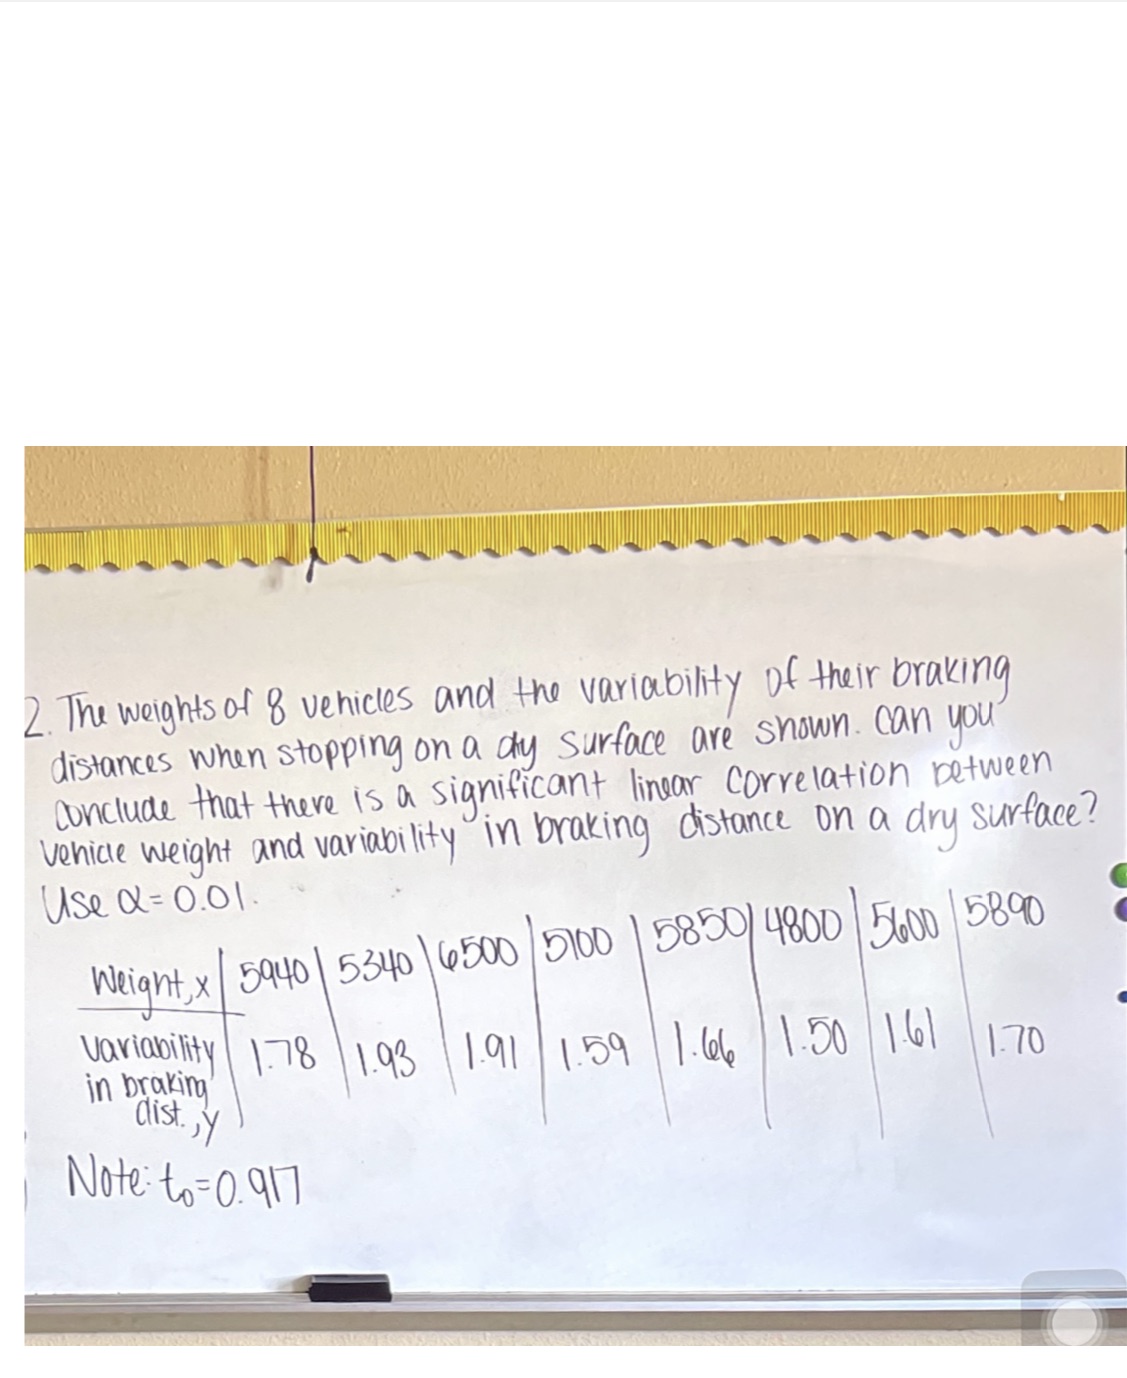 2. The weights of 8 vehicles and the variability of their braking
distances when stopping on a dry surface are shown. Can you
conclude that there is a significant linear correlation between
vehicle weight and variability in braking distance on a dry surface?
Use α = 0.01.
Weight, x | 5940 | 5340 | 6500 | 5100 | 5850 | 4800 | 5600 | 5890
Variability | 1.78 | 1.93 | 1.91 | 1.59 | 1.66 | 1.50 | 1.61 | 1.70
in braking
dist., y
Note: t₀=0.917